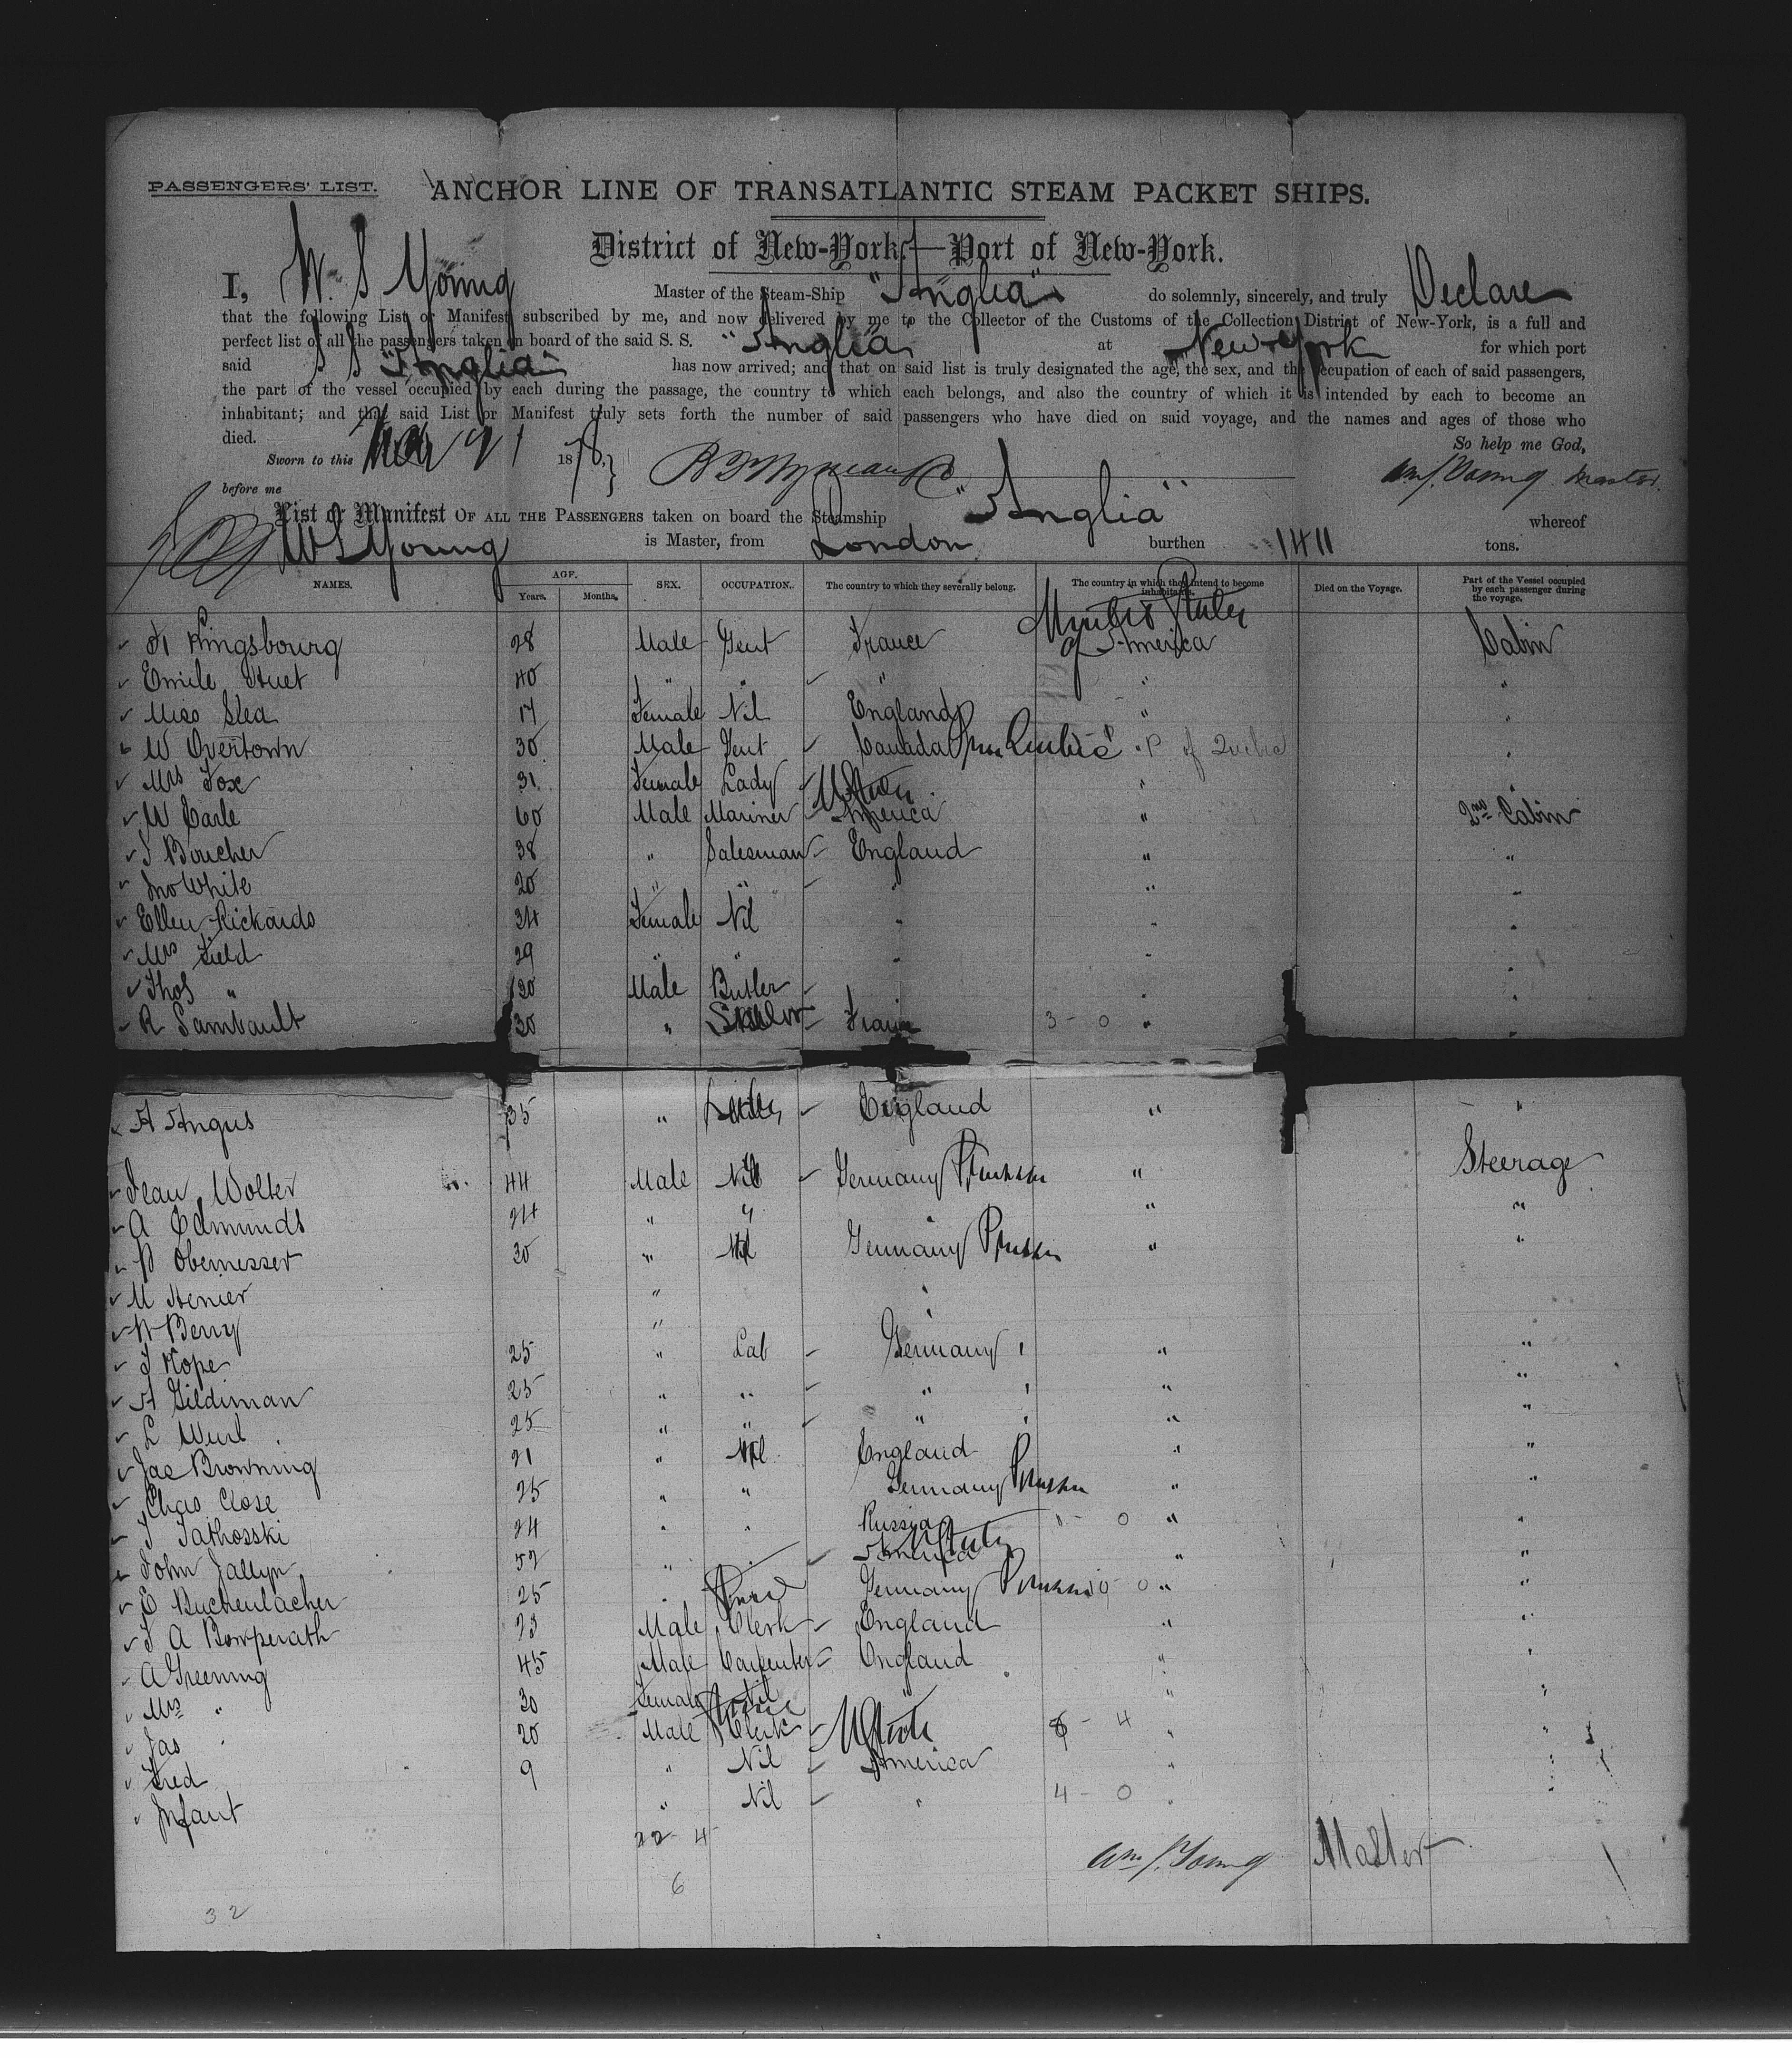 PASSENGERS' LIST. ANCHOR LINE OF TRANSATLANTIC STEAM PACKET SHIPS.
District of New-York—Port of New-York.
I, W. S Young Master of the Steam-Ship "Anglia" do solemnly, sincerely, and truly Declare
that the following List or Manifest subscribed by me, and now delivered by me to the Collector of the Customs of the Collection District of New-York, is a full and
perfect list of all the passengers taken on board of the said S. S. "Anglia" at New York for which port
said S S "Anglia" has now arrived; and that on said list is truly designated the age, the sex, and the occupation of each of said passengers,
the part of the vessel occupied by each during the passage, the country to which each belongs, and also the country of which it is intended by each to become an
inhabitant; and that said List or Manifest truly sets forth the number of said passengers who have died on said voyage, and the names and ages of those who
died. So help me God,
Sworn to this 21 1878,
before me Wm S. Young Master.
List or Manifest OF ALL THE PASSENGERS taken on board the Steamship "Anglia" whereof
W S Young is Master, from London burthen 1411 tons.
NAMES. AGE. Years. Months. SEX. OCCUPATION. The country to which they severally belong. The country in which they intend to become inhabitants. Died on the Voyage. Part of the Vessel occupied by each passenger during the voyage.
A Kingsbourg 28 Male Gent France United States of America Cabin
Emile Huet 40 " " " " "
Miss Slea 17 Female Nil England " "
W Overtown 30 Male Gent Canada Quebec P of Quebec "
Mrs Fox 31 Female Lady U States " "
W Carle 60 Male Mariner America " 2nd Cabin
J Boucher 38 " Salesman England " "
Jno White 20 " " " " "
Ellen Rickards 34 Female Nil " " "
Mrs Field 29 " " " " "
Thos " 30 Male Butler " "
R Sambault 30 " France 3 - 0 " "
A Angus 35 " England " "
Jean Wolter 44 Male Nil Germany Prussia " Steerage
A Edmunds 24 " " " " "
P Obermesser 30 " Nil Germany Prussia " "
M Henier " "
W Berry " "
J Kope 25 " Lab Germany " " "
A Gildiman 25 " " " " " "
L Wurl 25 " " " " " "
Jas Browning 21 " Nil England " "
Chas Close 25 " " Germany Prussia " "
J Tathosski 24 " " Russia 1 - 0 " "
John Jallyn 52 " " America States " "
E Buchenlacher 25 " Germany Prussia 10 - 0 " "
J A Bowperath 23 Male Clerk England " "
A Greening 45 Male Carpenter England " "
Mrs " 30 Female Nil " " "
Jas " 20 Male Clerk U State 8 - 4 " "
Fred 9 " Nil America " "
Infant " Nil " 4 - 0 " "
22 - 4
Wm S. Young Master
6
32